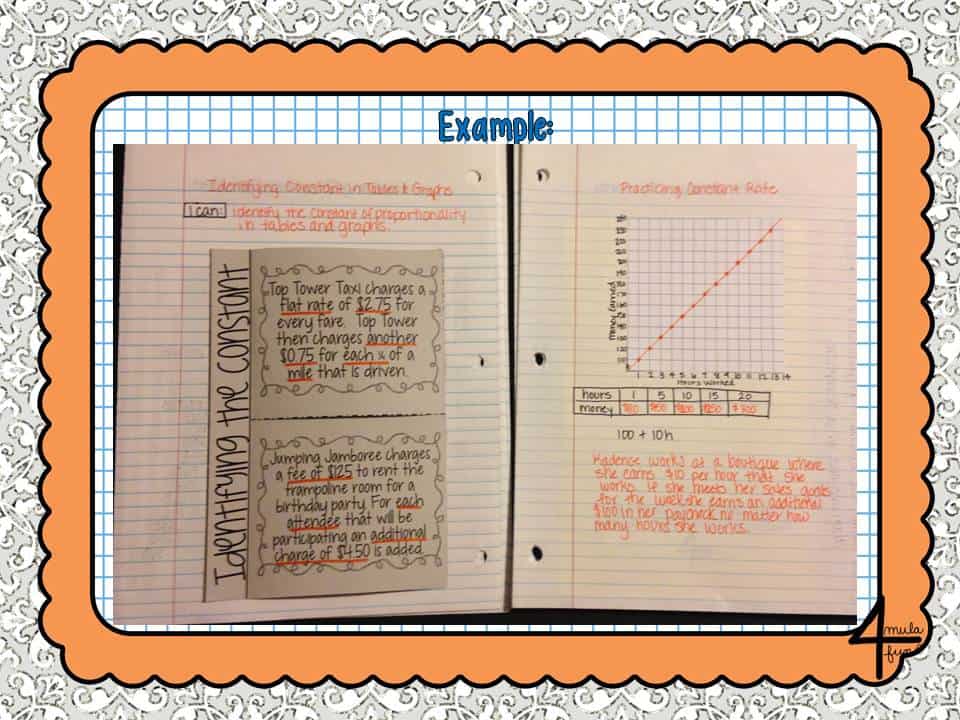 Example:
Identifying Constant in Tables & Graphs
I can: identify the constant of proportionality
in tables and graphs.
Identifying the Constant
Top Tower Taxi charges a
flat rate of $2.75 for
every fare. Top Tower
then charges another
$0.75 for each ¼ of a
mile that is driven.
Jumping Jamboree charges
a fee of $125 to rent the
trampoline room for a
birthday party. For each
attendee that will be
participating an additional
charge of $4.50 is added.
Practicing Constant Rate
Money Earned
1 2 3 4 5 6 7 8 9 10 11 12 13 14
Hours Worked
hours 1 5 10 15 20
money
100 + 10h
Kadence works at a boutique where
she earns $10 per hour that she
works. If she meets her sales goals
for the week she earns an additional
$100 in her paycheck no matter how
many hours she works.
4mula
fun